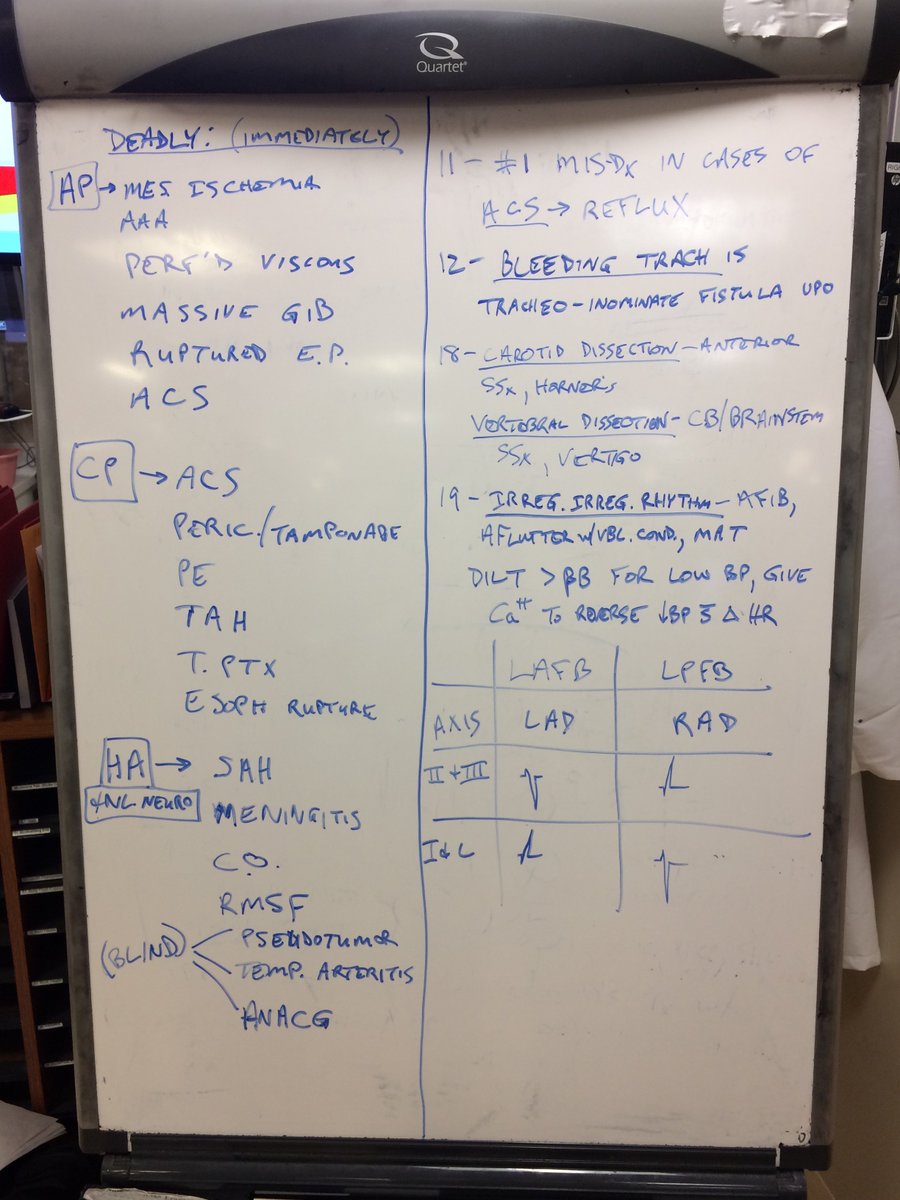 Quartet
DEADLY: (IMMEDIATELY)
AP → MES ISCHEMIA
AAA
PERF'D VISCOUS
MASSIVE GIB
RUPTURED E.P.
ACS
CP → ACS
PERIC./TAMPONADE
PE
TAH
T. PTX
ESOPH RUPTURE
HA → SAH
+NL NEURO
MENINGITIS
C.O.
RMSF
(BLIND)
PSEUDOTUMOR
TEMP. ARTERITIS
ANACG
11 - #1 MIS-Dx IN CASES OF
ACS → REFLUX
12 - BLEEDING TRACH IS
TRACHEO-INOMINATE FISTULA UPO
18 - CAROTID DISSECTION - ANTERIOR
SSx, HORNER'S
VERTEBRAL DISSECTION - CB/BRAINSTEM
SSx, VERTIGO
19 - IRREG. IRREG. RHYTHM - AFIB,
AFLUTTER w/VBL. COND., MAT
DILT > βB FOR LOW BP, GIVE
Ca++ TO REVERSE ↓BP s̄ Δ HR
LAFB LPFB
AXIS LAD RAD
II + III
I & L